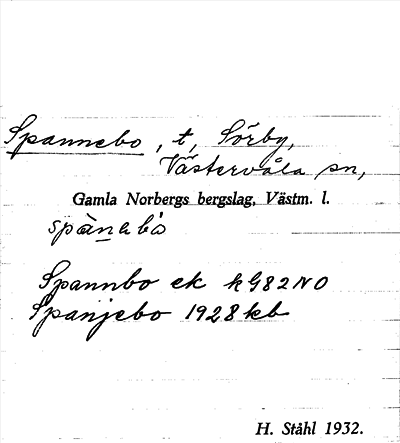 Spannebo, t, Sörby,
Västervåla sn,
Gamla Norbergs bergslag, Västm. l.
spànabo
Spannbo ek kG82NO
Spanjebo 1928 kb
H. Ståhl 1932.